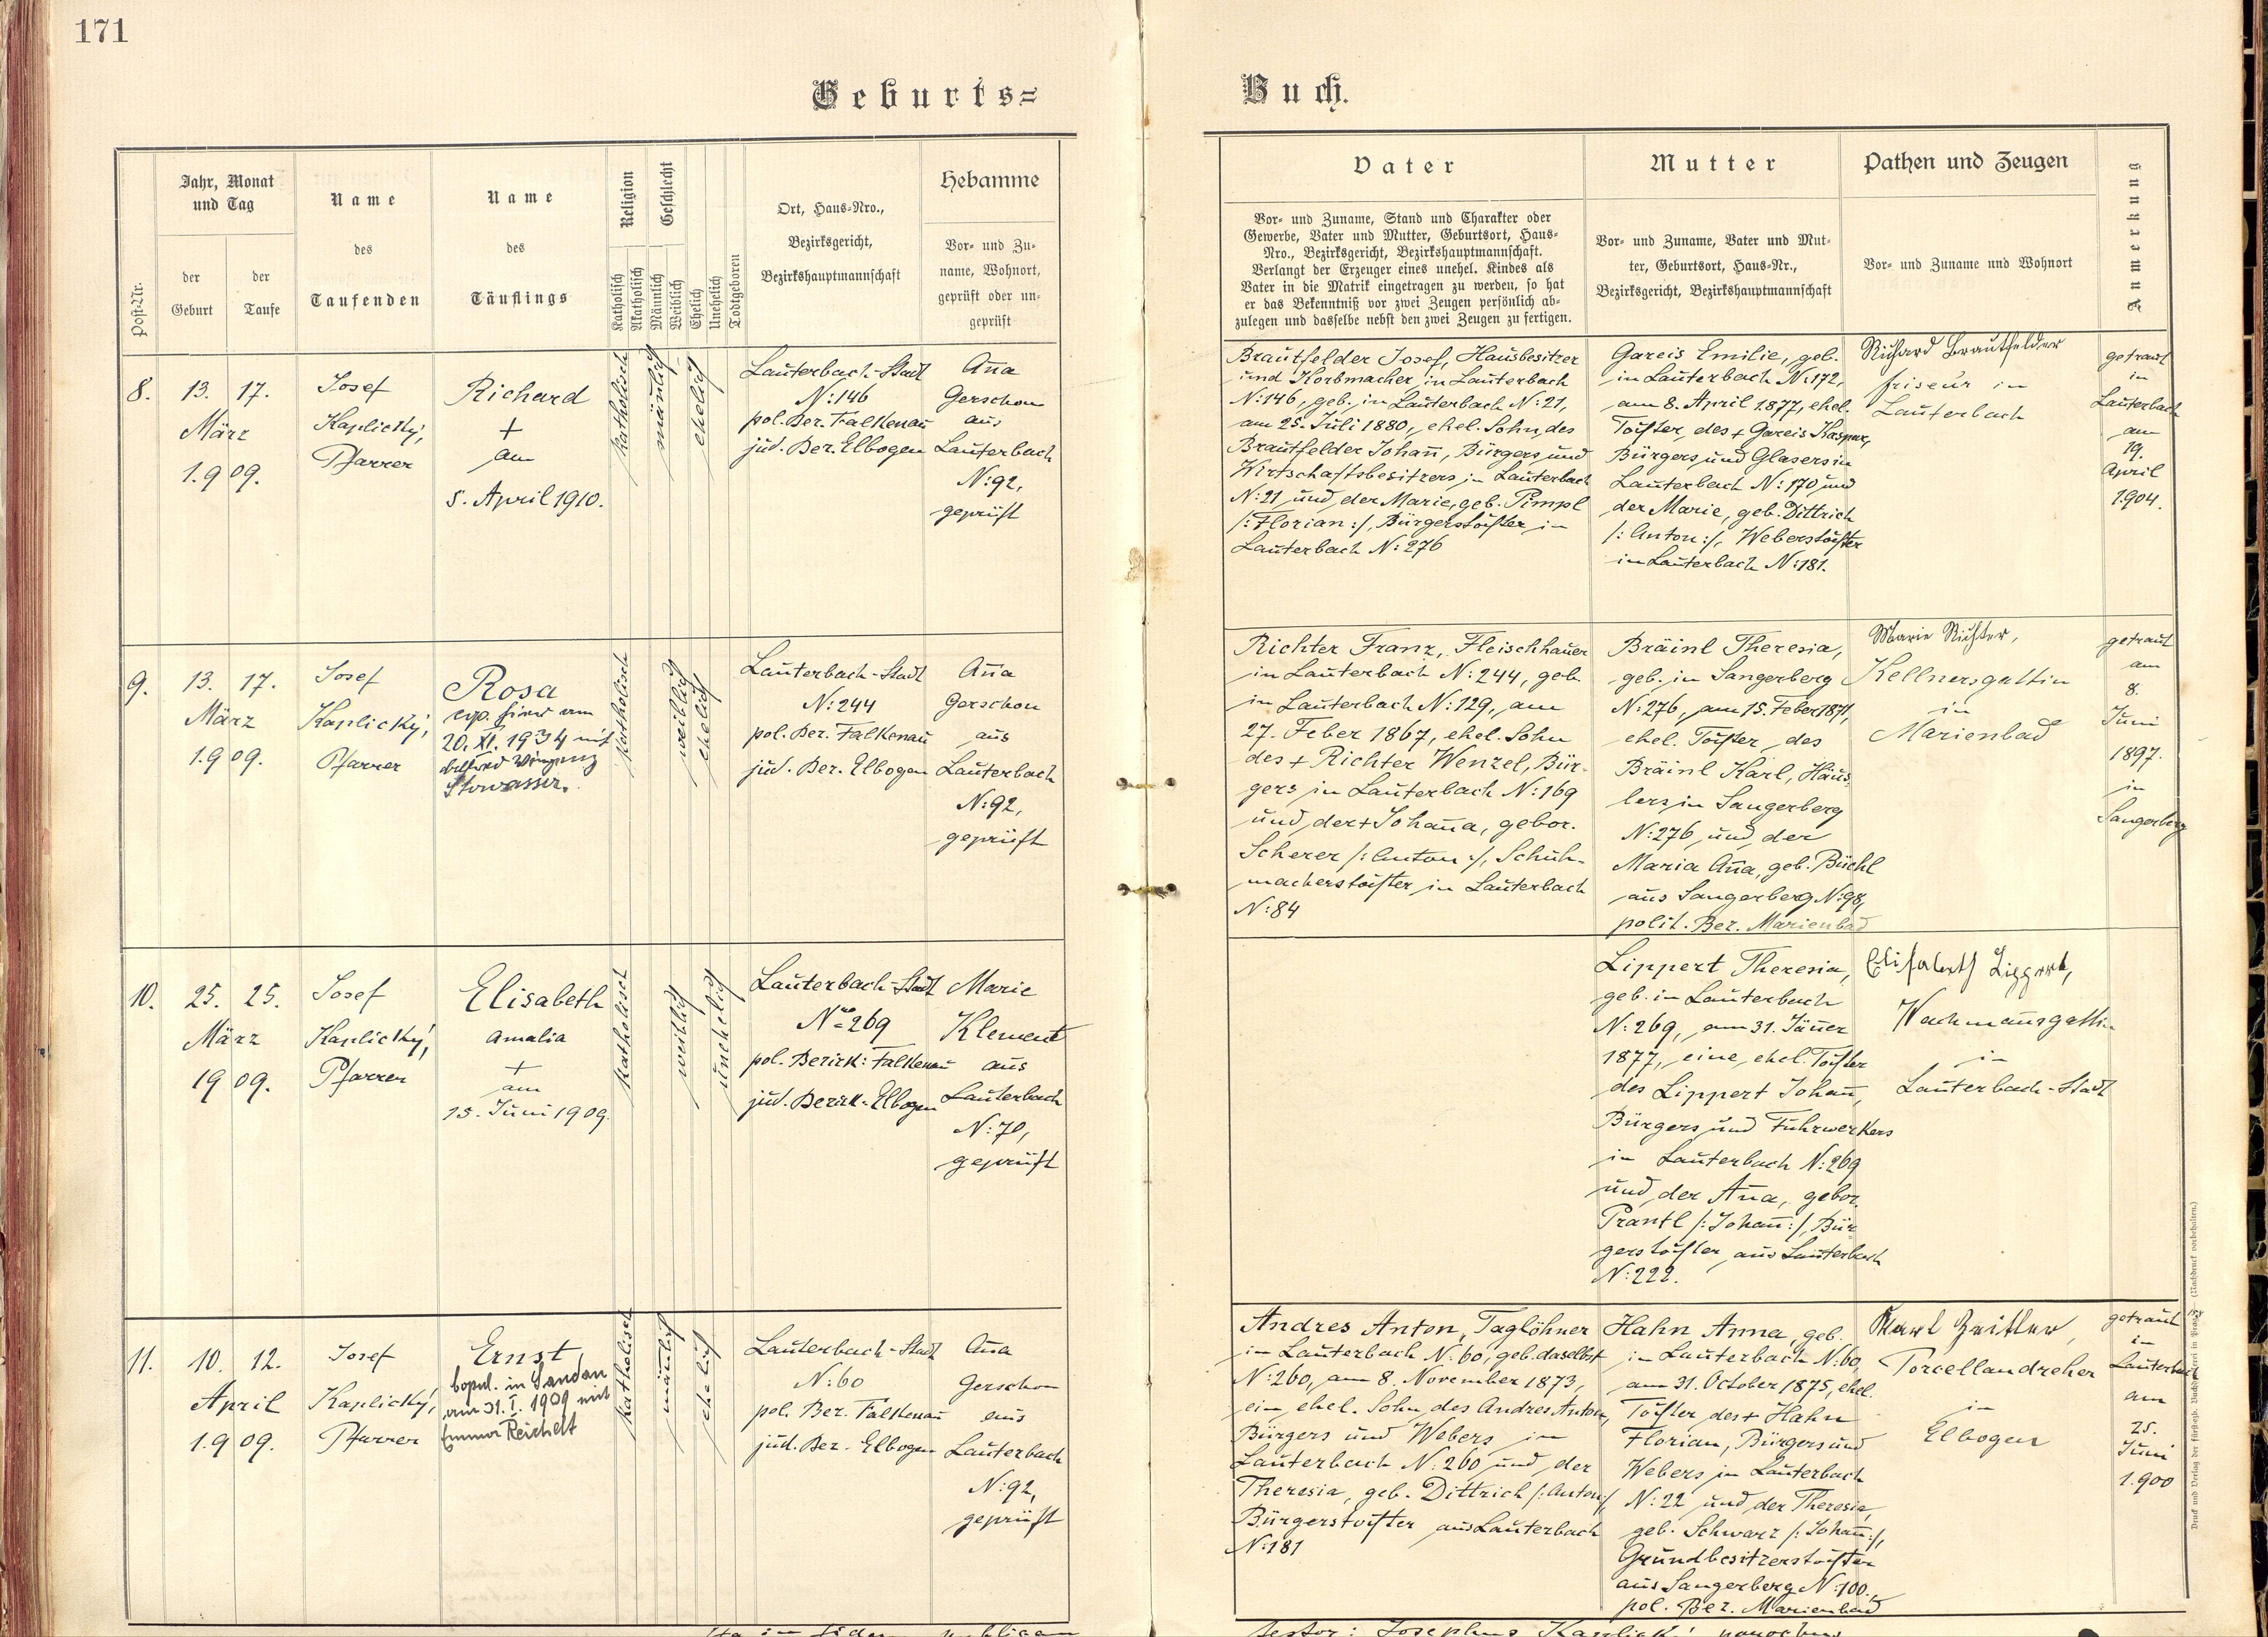 171
Geburts=
Buch.
Post-Nr.
Jahr, Monat
und Tag
der
Geburt
der
Taufe
Name
des
Taufenden
Name
des
Täuflings
Religion
Katholisch
Akatholisch
Geschlecht
Männlich
Weiblich
Ehelich
Unehelich
Todtgeboren
Ort, Haus-Nro.,
Bezirksgericht,
Bezirkshauptmannschaft
Hebamme
Vor- und Zu-
name, Wohnort,
geprüft oder un-
geprüft
Vater
Vor- und Zuname, Stand und Charakter oder
Gewerbe, Vater und Mutter, Geburtsort, Haus-
Nro., Bezirksgericht, Bezirkshauptmannschaft.
Verlangt der Erzeuger eines unehel. Kindes als
Vater in die Matrik eingetragen zu werden, so hat
er das Bekenntniß vor zwei Zeugen persönlich ab-
zulegen und dasselbe nebst den zwei Zeugen zu fertigen.
Mutter
Vor- und Zuname, Vater und Mut-
ter, Geburtsort, Haus-Nr.,
Bezirksgericht, Bezirkshauptmannschaft
Pathen und Zeugen
Vor- und Zuname und Wohnort
Anmerkung
8.
13. 17.
März
1909.
Josef
Kaplický,
Pfarrer
Richard
+
am
5. April 1910.
katholisch
mänlich
ehelich
Lauterbach-Stadt
N: 146
pol. Bez. Falkenau
jud. Bez. Elbogen
Aña
Gerschon
aus
Lauterbach
N: 92,
geprüft
Brautfelder Josef, Hausbesitzer
und Korbmacher in Lauterbach
N: 146, geb. in Lauterbach N: 21,
am 25. Juli 1880, ehel. Sohn des
Brautfelder Johañ, Bürgers und
Wirtschaftsbesitzers in Lauterbach
N: 21 und der Marie, geb. Pimpl
/: Florian :/, Bürgerstochter in
Lauterbach N: 276
Gareis Emilie, geb.
in Lauterbach N: 172,
am 8. April 1877, ehel.
Tochter des + Gareis Kaspar,
Bürgers und Glasers in
Lauterbach N: 170 und
der Marie, geb. Dittrich
/: Anton :/, Weberstochter
in Lauterbach N: 181.
Richard Brautfelder
friseur in
Lauterbach
getraut
in
Lauterbach
am
19.
April
1904.
9.
13. 17.
März
1909.
Josef
Kaplický,
Pfarrer
Rosa
20. XI. 1934 mit
Stowasser.
katholisch
weiblich
ehelich
Lauterbach-Stadt
N: 244
pol. Bez. Falkenau
jud. Bez. Elbogen
Aña
Gerschon
aus
Lauterbach
N: 92,
geprüft
Richter Franz, Fleischhauer
in Lauterbach N: 244, geb.
in Lauterbach N: 129, am
27. Feber 1867, ehel. Sohn
des + Richter Wenzel, Bür-
gers in Lauterbach N: 169
und der + Johaña, gebor.
Scherer /: Anton :/, Schuh-
macherstochter in Lauterbach
N: 84
Bräinl Theresia,
geb. in Sangerberg
N: 276, am 15. Feber 1871,
ehel. Tochter des
Bräinl Karl, Häus-
lers in Sangerberg
N: 276 und der
Maria Aña, geb. Büchl
aus Sangerberg N: 98,
polit. Bez. Marienbad
Marie Richter,
Kellnersgattin
in
Marienbad
getraut
am
8.
Juni
1897.
in
Sangerberg
10.
25. 25.
März
1909.
Josef
Kaplický,
Pfarrer
Elisabeth
Amalia
+
am
15. Juni 1909.
katholisch
weiblich
unehelich
Lauterbach-Stadt
Nro 269
pol. Bezirk: Falkenau
jud. Bezirk: Elbogen
Marie
Klement
aus
Lauterbach
N: 70,
geprüft
Lippert Theresia,
geb. in Lauterbach
N: 269, am 31. Jäner
1877, eine ehel. Tochter
des Lippert Johañ,
Bürgers und Fuhrwerkers
in Lauterbach N: 269
und der Aña, gebor.
Prantl /: Johañ :/, Bür-
gerstochter aus Lauterbach
N: 222.
Elisabeth Lippert,
Wachmañsgattin
in
Lauterbach-Stadt
11.
10. 12.
April
1909.
Josef
Kaplický,
Pfarrer
Ernst
copul. in Sandau
am 31. I. 1909 mit
Emma Reichelt
katholisch
mänlich
ehelich
Lauterbach-Stadt
N: 60
pol. Bez. Falkenau
jud. Bez. Elbogen
Aña
Gerschon
aus
Lauterbach
N: 92,
geprüft
Andres Anton, Taglöhner
in Lauterbach N: 60, geb. daselbst
N: 260, am 8. November 1873,
ein ehel. Sohn des Andres Anton,
Bürgers und Webers in
Lauterbach N: 260 und der
Theresia, geb. Dittrich /: Anton :/,
Bürgerstochter aus Lauterbach
N: 181
Hahn Anna, geb.
in Lauterbach N: 60,
am 31. October 1875, ehel.
Tochter des + Hahn
Florian, Bürgers und
Webers in Lauterbach
N: 22 und der Theresia,
geb. Schwarz /: Johañ :/,
Grundbesitzerstochter
aus Sangerberg N: 100.,
pol. Bez. Marienbad
Karl Zeitler,
Porcellandreher
in
Elbogen
getraut
in
Lauterbach
am
25.
Juni
1900
Druck und Verlag der fürsterzb. Buchdruckerei in Prag. (Nachdruck vorbehalten.)